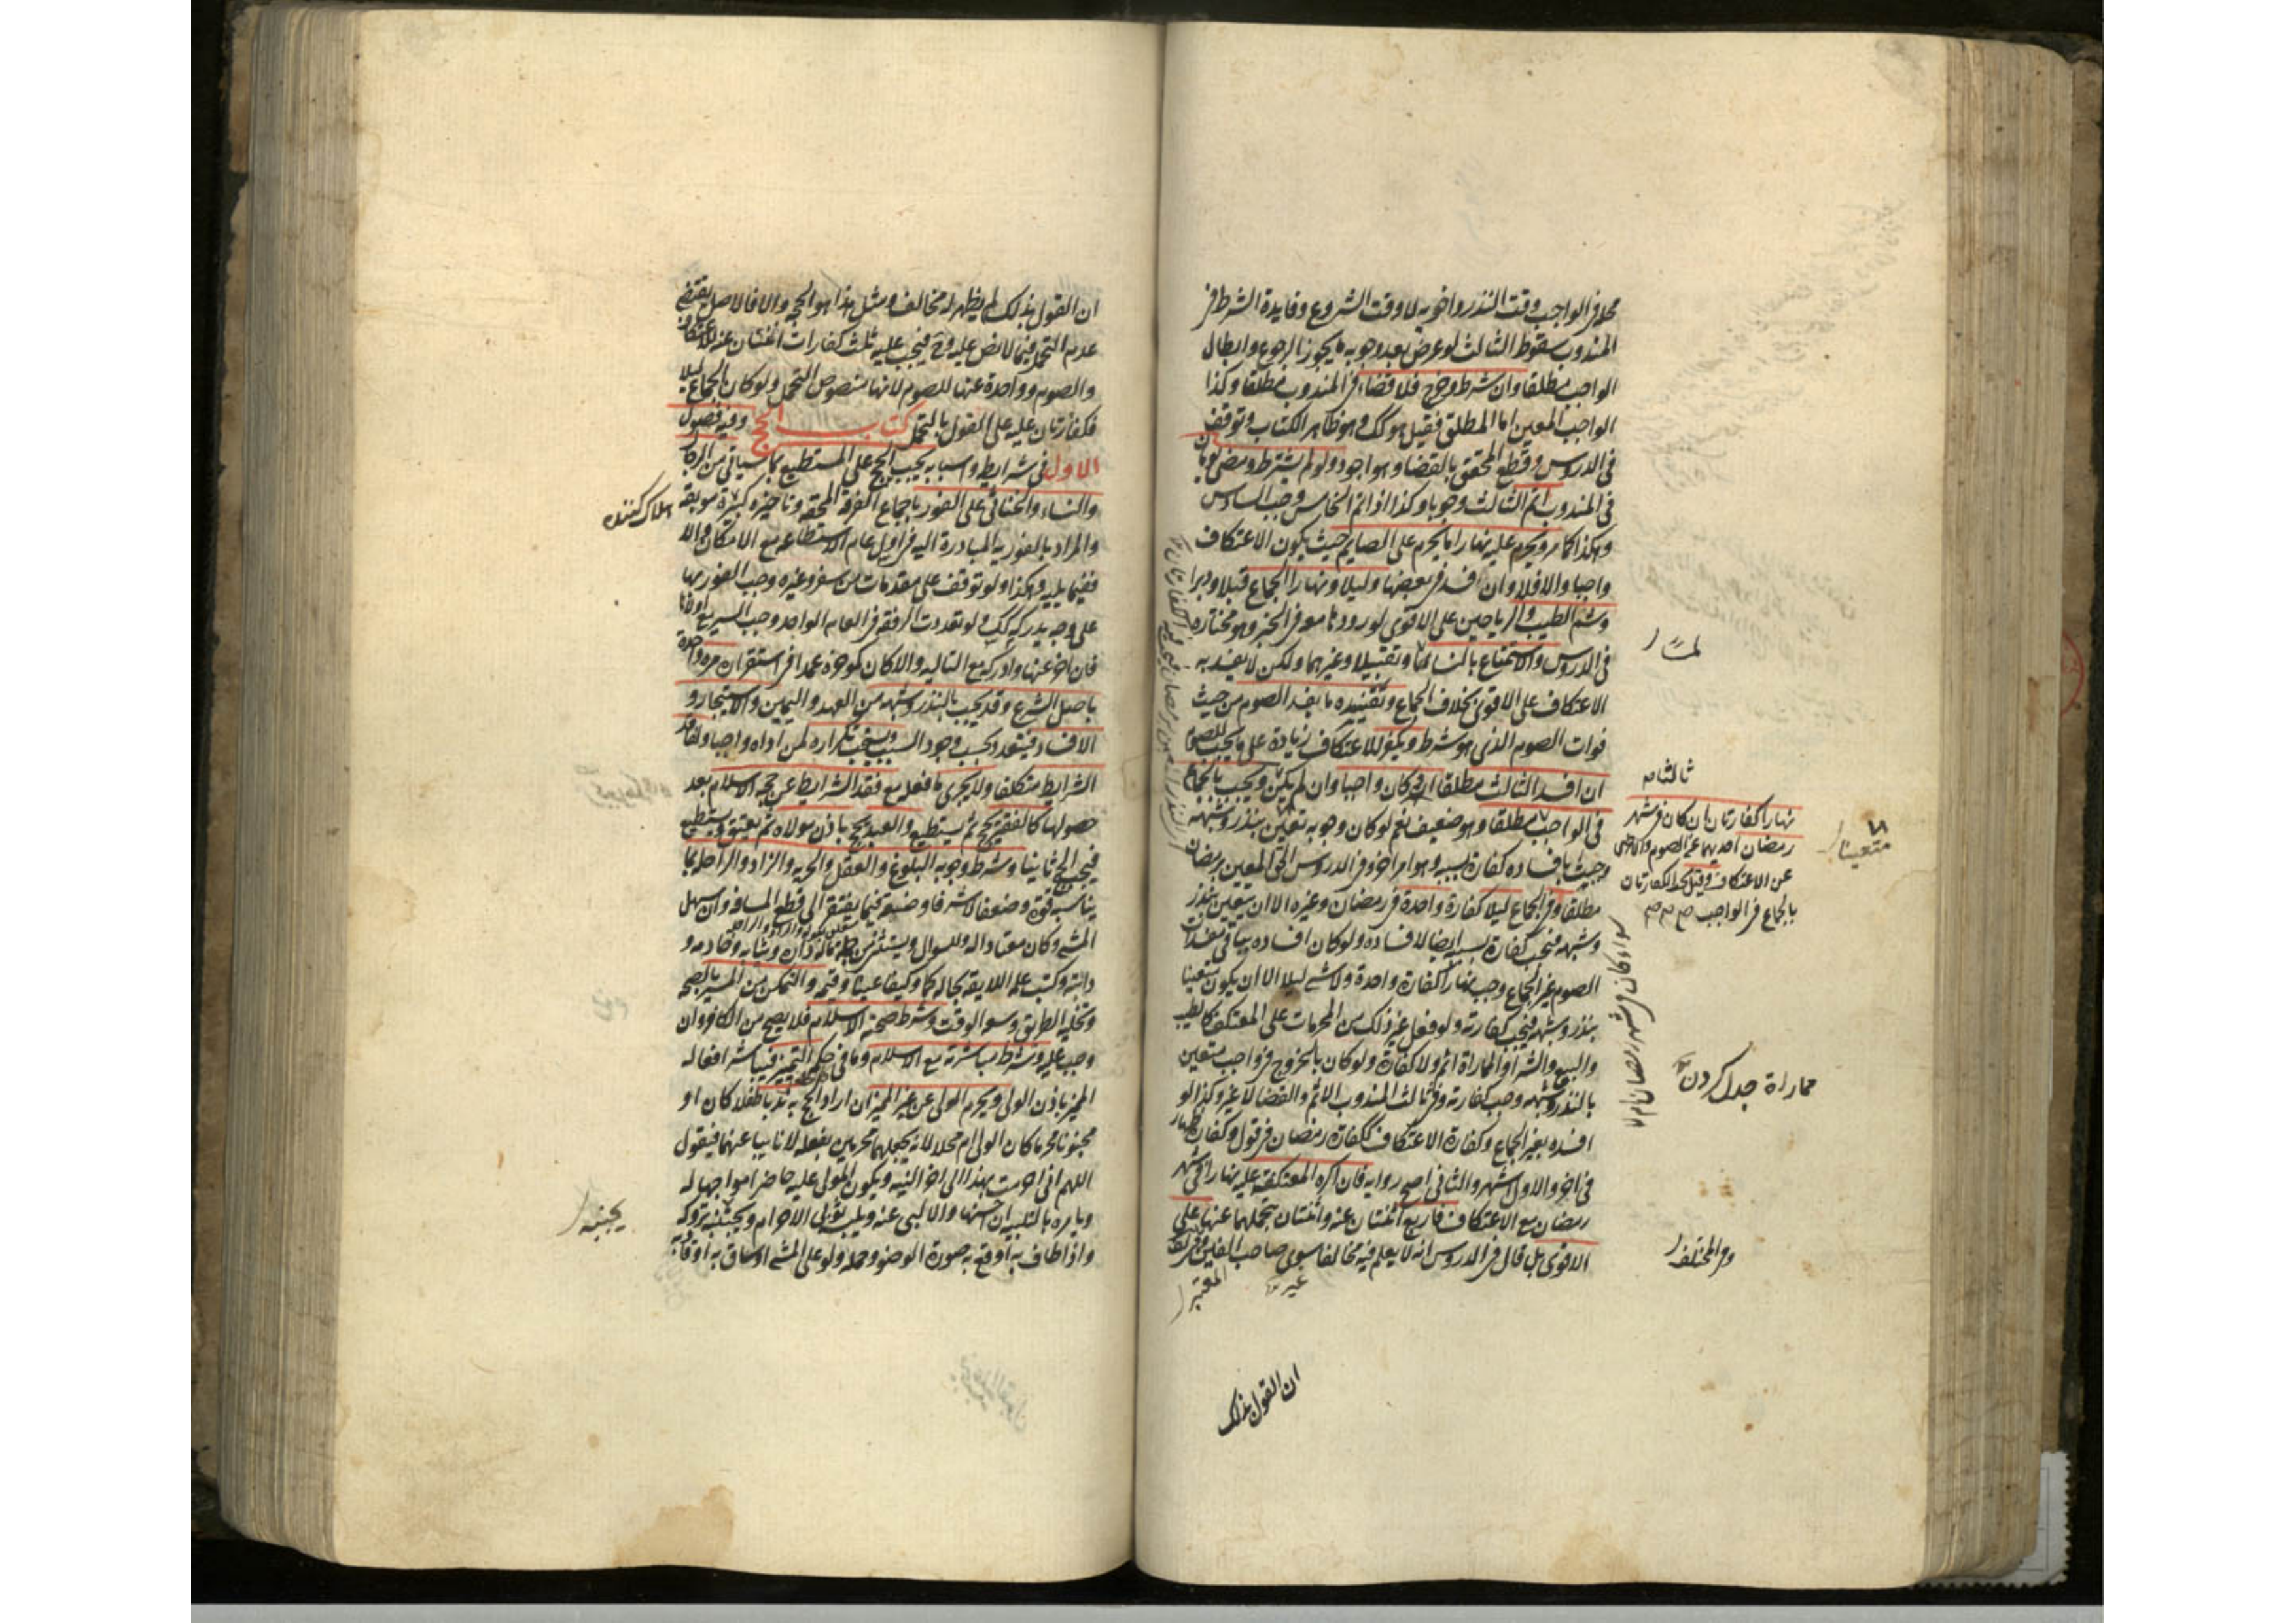 محلا فى الواجب وقت النذر واخويه لا وقت الشروع وفايدة الشرط فى
المندوب سقوط الثالث لو عرض بعد وجوبه ما يجوز الرجوع وابطال
الواجب مطلقا وان شرط وخرج فلا قضاء فى المندوب مطلقا وكذا
الواجب المعين اما المطلق فقيل هو كك وهو ظاهر الكتاب وتوقف
فى الدروس وقطع المحقق بالقضا وهو اجود ولو لم يشترط ومضى يومان
فى المندوب اتم الثالث وجوبا وكذا اذا اتم الخامس وجب السادس
وهكذا كما مر ويحرم عليه نهارا ما يحرم على الصايم حيث يكون الاعتكاف
واجبا والا فلا وان افسد فى بعضها وليلا ونهارا الجماع قبلا ودبرا
وشم الطيب والرياحين على الاقوى لورودها معه فى الخبر وهو مختاره
فى الدروس والاستمتاع بالنساء لمسا وتقبيلا وغيرهما ولكن لا يفسد به
الاعتكاف على الاقوى بخلاف الجماع وتفسيده ما يفسد الصوم من حيث
فوات الصوم الذى هو شرط ويكفر للاعتكاف زيادة على ما يجب للصوم
ان افسد الثالث مطلقا او كان واجبا وان لم يكن ويجب بالجماع
فى الواجب مطلقا وهو ضعيف نعم لو كان وجوبه متعين بنذر وشبهه
وجب بافساده كفارة بسببه وهو امر اخر وفى الدروس الحق المعين برمضان
مطلقا وفى الجماع ليلا كفارة واحدة فى رمضان وغيره الا ان يتعين بنذر
وشبهه فيجب كفارة بسببه ايضا لافساده ولو كان افساده بباقى مفسدات
الصوم غير الجماع وجب نهارا كفارة واحدة ولا شى ليلا الا ان يكون متعينا
بنذر وشبهه فيجب كفارته ولو فعل غير ذلك من المحرمات على المعتكف كالطيب
والبيع والشراء والمماراة اثم ولا كفارة ولو كان بالخروج فى واجب متعين
بالنذر وشبهه وجب كفارته وفى ثالث المندوب الاثم والقضا لا غير وكذا لو
افسده بغير الجماع وكفارة الاعتكاف ككفارة رمضان فى قول وكفارة ظهار
فى اخر والاول اشهر والثانى اصح رواية فان اكره المعتكفة عليه نهارا فى شهر
رمضان مع الاعتكاف فاربع اثنتان عنه واثنتان يتحملهما عنها على
الاقوى بل قال فى الدروس انه لا يعلم فيه مخالفا سوى صاحب المعتبر وفى المختلف
المعتبر
لمسا
ثالثا م
نهارا كفارتان ان كان فى شهر
رمضان احديهما عن الصوم والاخرى
عن الاعتكاف وقيل تجب الكفارتان
بالجماع فى الواجب
متعينا
سواء كان فى شهر رمضان ام لا
مماراة جدل كردن
وفى المختلف
ان القول بذلك
ان القول بذلك لم يظهر له مخالف ومثل هذا هو الحجة والا فالاصل يقتضى
عدم التحمل فيما لا نص عليه وح فيجب عليه ثلث كفارات اثنتان عنه للاعتكاف
والصوم وواحدة عنها للصوم لانها منصوص التحمل ولو كان الجماع ليلا
فكفارتان عليه على القول بالتحمل كتاب الحج وفيه فصول
الاول فى شرايطه واسبابه يجب الحج على المستطيع بما سياتى من الرجال
والنساء والخناثى على الفور باجماع الفرقة المحقة وتاخيره كبيرة موبقة
والمراد بالفورية المبادرة اليه فى اول عام الاستطاعة مع الامكان والا
ففيما يليه وهكذا ولو توقف على مقدمات من سفر وغيره وجب الفور بها
على وجه يدركه كك ولو تعددت الرفقة فى العام الواحد وجب السير مع اولها
فان اخر عنها وادركه مع التالية والا كان كموخره عمدا فى استقراره مرة واحدة
باصل الشرع وقد يجب بالنذر وشبهه من العهد واليمين والاستيجار و
الافساد فيتعدد بحسب وجود السبب ويستحب تكراره لمن اداه واجبا ولفاقد
الشرايط متكلفا ولا يجزى ما فعله مع فقد الشرايط عن حجة الاسلام بعد
حصولها كالفقير يحج ثم يستطيع والعبد يحج باذن مولاه ثم يعتق ويستطيع
فيجب الحج ثانيا وشرط وجوبه البلوغ والعقل والحرية والزاد والراحلة بما
يناسبه قوة وضعفا لا شرفا وضعة فيما يفتقر الى قطع المسافة وان سهل
المشى وكان معتادا له وللسوال ويستثنى من جملة ماله داره وثيابه وخادمه و
دابته وكتب علمه اللايقة بحاله كما وكيفا عينا وقيمة والتمكن من المسير بالصحة
وتخلية الطريق وسعة الوقت وشرط صحته الاسلام فلا يصح من الكافر وان
وجب عليه وشرط مباشرته مع الاسلام وما فى حكمه التمييز فيباشر افعاله
المميز باذن الولى ويحرم الولى عن غير المميز ان اراد الحج به ندبا طفلا كان او
مجنونا محرما كان الولى ام محلا لانه يجعلهما محرمين بفعله لا نايبا عنهما فيقول
اللهم انى احرمت بهذا الى اخر النية ويكون المولى عليه حاضرا مواجها له
ويامره بالتلبية ان احسنها والا لبى عنه ويلبسه ثوبى الاحرام ويجنبه تروكه
واذا طاف به اوقع به صورة الوضوء وحمله ولو على المشى او ساق به او قاد به
هلاک کننده
يجنبه